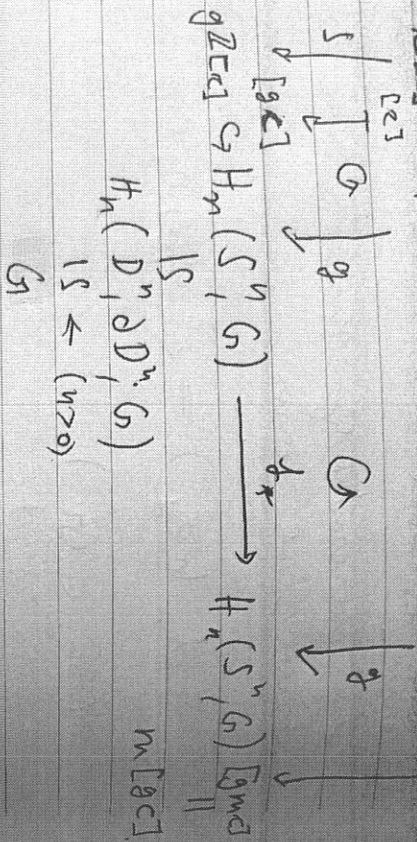 [c]
S G g ↺ g
[gc] f_*
gℤ[c] G H_n(S^n, G) ⟶ H_n(S^n, G) [gmc]
IS ||
H_n(D^n, ∂D^n; G) m[gc]
IS ← (n>0)
G